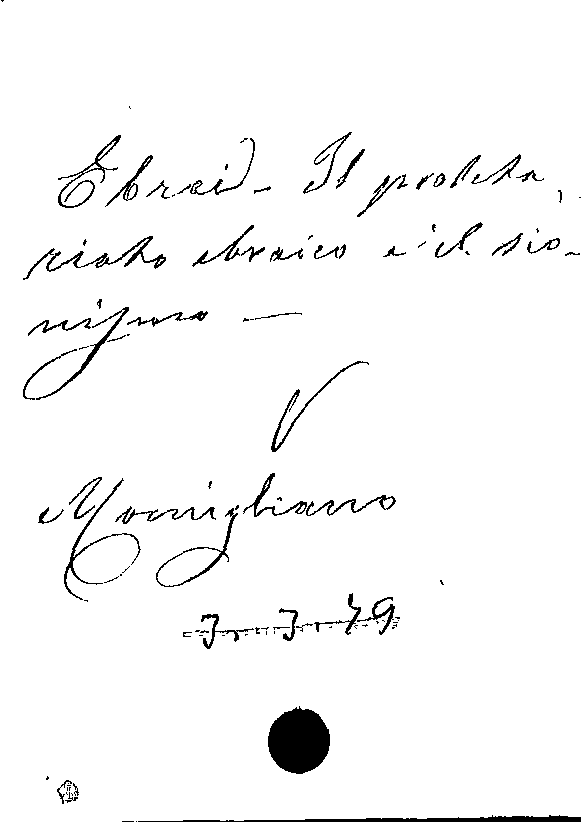 Ebrei - Il proleta,
riato ebraico e il sio-
nismo —
V
Momigliano